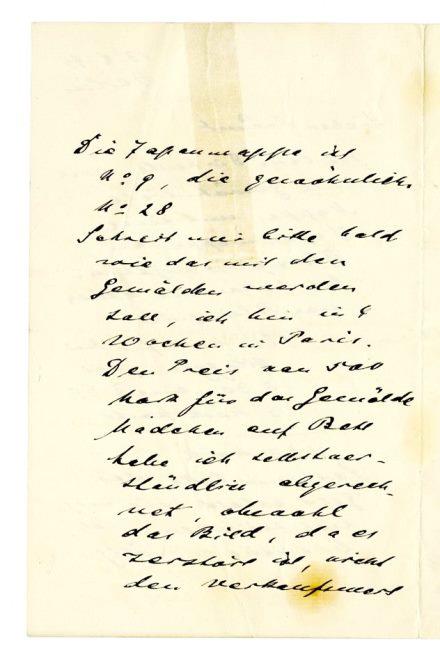 Die Japanmappe ist
No 9, die gewöhnliche
No 28
Schreib mir bitte bald
wie das mit den
Gemälden werden
soll, ich bin in 4
Wochen in Paris.
Den Preis von 500
Mark für das Gemälde
Mädchen auf Bett
habe ich selbstver-
ständlich abgerech-
net, obwohl
das Bild, da es
zerstört ist, nicht
den Verkaufswert